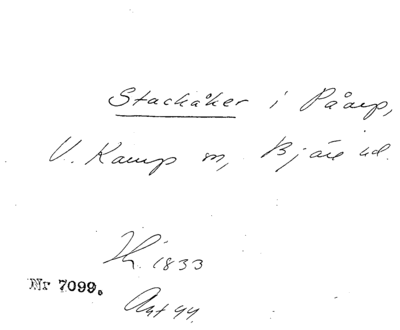 Stackåker i Påarp,
V. Karup sn, Bjäre hd.
1833
Nr 7099.
44.